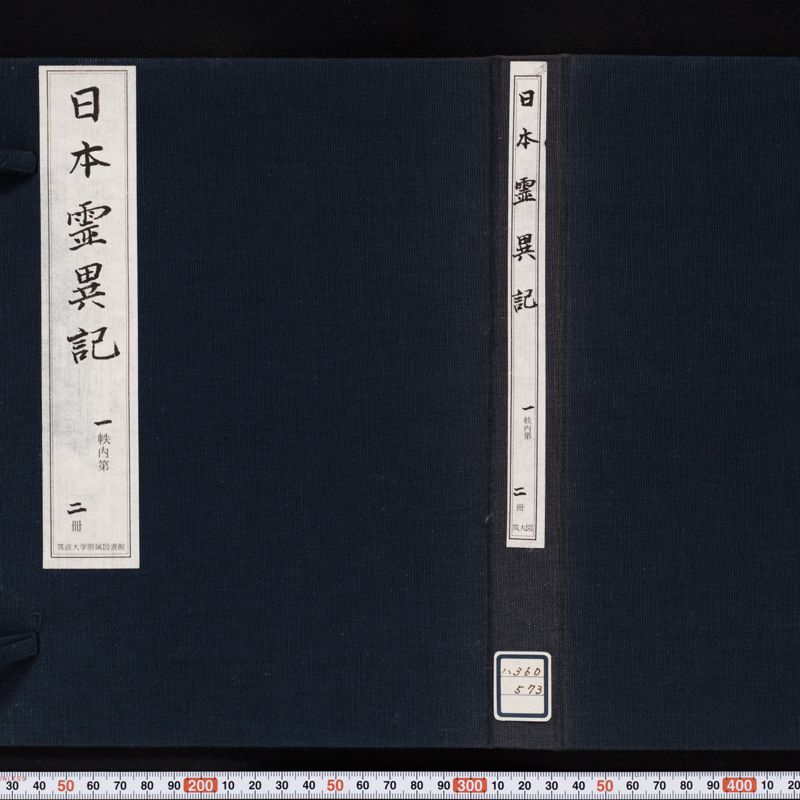 日本霊異記
一
帙内第
二
冊
筑波大学附属図書館
日本霊異記
一
帙内第
二
冊
筑大図
ハ360
573
30 40 50 60 70 80 90 200 10 20 30 40 50 60 70 80 90 300 10 20 30 40 50 60 70 80 90 400 10 20